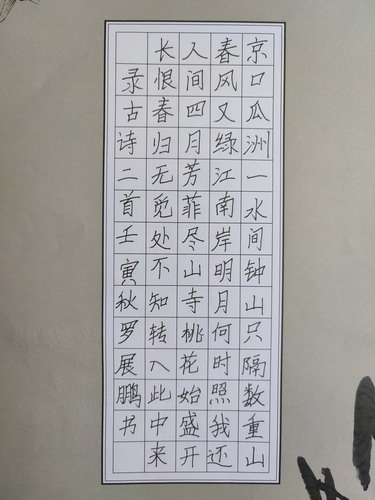 京口瓜洲一水间钟山只隔数重山
春风又绿江南岸明月何时照我还
人间四月芳菲尽山寺桃花始盛开
长恨春归无觅处不知转入此中来
录古诗二首壬寅秋罗展鹏书